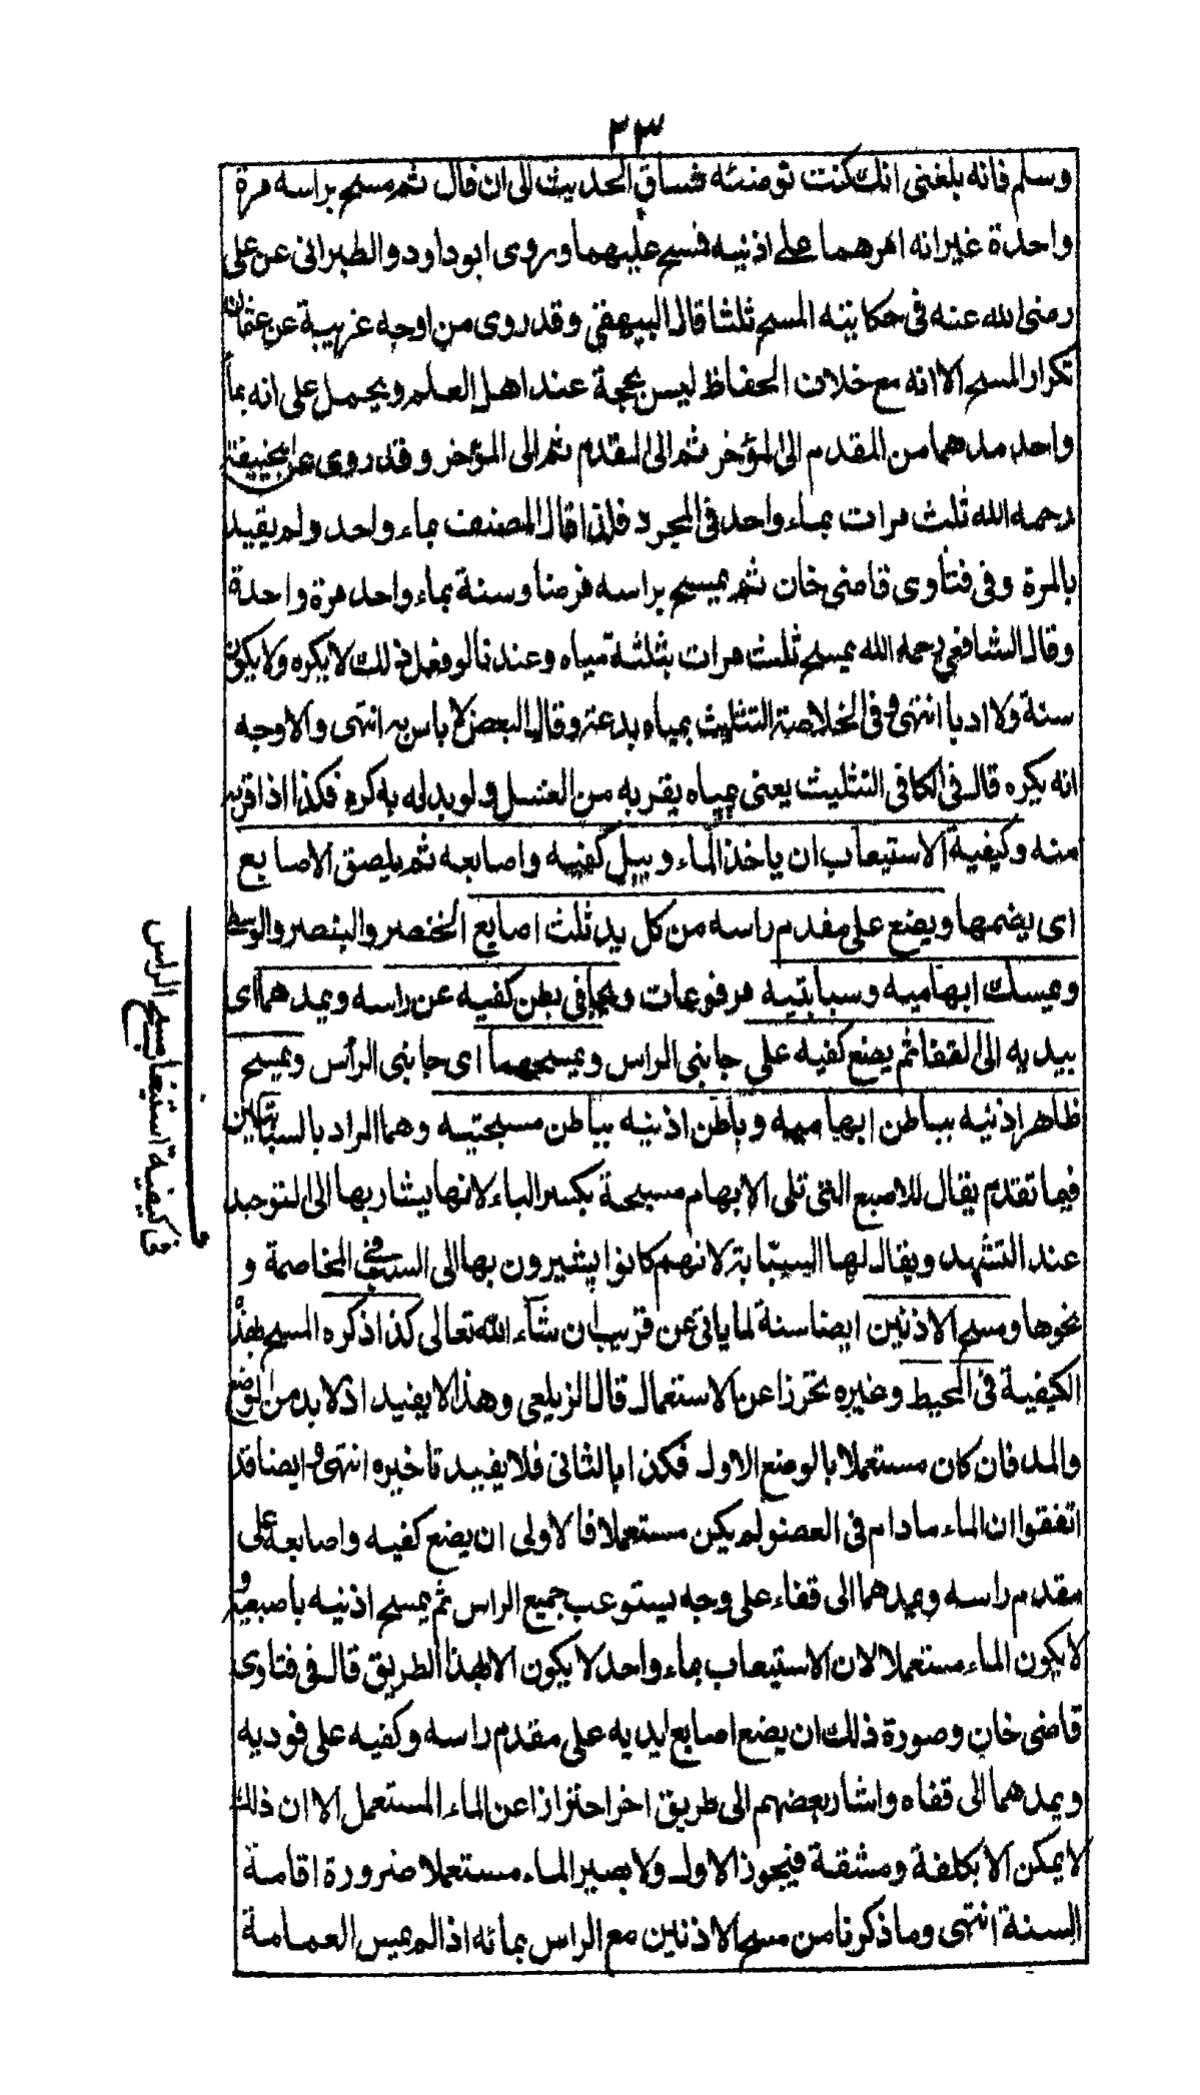 ٣٣
وسلم فانه بلغنى انك كنت توضئه فساق الحديث الى ان قال ثم مسح براسه مرة
واحدة غير انه امرهما على اذنيه فمسح عليهما وروى ابو داود والطبرانى عن على
رضى الله عنه فى حكايته المسح ثلثا قال البيهقى وقد روى من اوجه غريبة عن عثمان
تكرار المسح الا انه مع خلاف الحفاظ ليس بحجة عند اهل العلم ويحمل على انه بماء
واحد مدهما من المقدم الى المؤخر ثم الى المقدم ثم الى المؤخر وقد روى عن ابى حنيفة
رحمه الله ثلث مرات بماء واحد فى المجرد فلذا قال المصنف بماء واحد ولم يقيد
بالمرة وفى فتاوى قاضى خان ثم يمسح براسه فرضا وسنة بماء واحد مرة واحدة
وقال الشافعى رحمه الله يمسح ثلث مرات بثلثة مياه وعندنا لو فعل ذلك لا يكره ولا يكون
سنة ولا ادبا انتهى وفى الخلاصة التثليث بمياه بدعة وقال البعض لا باس به انتهى والاوجه
انه يكره قال فى الكافى التثليث يعنى بمياه يقربه من الغسل ولو بدله به كره فكذا اذا قربه
منه وكيفية الاستيعاب ان ياخذ الماء ويبل كفيه واصابعه ثم يلصق الاصابع
اى يضمها ويضع على مقدم راسه من كل يد ثلث اصابع الخنصر والبنصر والوسطى
ويمسك ابهاميه وسبابتيه مرفوعات ويجافى بطن كفيه عن راسه ويمدهما اى
بيديه الى القفا ثم يضع كفيه على جانبى الراس ويمسحهما اى جانبى الرأس ويمسح
ظاهر اذنيه بباطن ابهاميه وباطن اذنيه بباطن مسبحتيه وهما المراد بالسبابتين
فيما تقدم يقال للاصبع التى تلى الابهام مسبحة بكسر الباء لانها يشار بها الى التوحيد
عند التشهد ويقال لها السبّابة لانهم كانوا يشيرون بها الى السب فى المخاصمة و
نحوها ومسح الاذنين ايضا سنة لما ياتى عن قريب ان شاء الله تعالى كذا ذكره المسح بهذه
الكيفية فى المحيط وغيره تحرزا عن الاستعمال قال الزيلعى وهذا لا يفيد اذ لا بد من الوضع
والمد فان كان مستعملا بالوضع الاول فكذا بالثانى فلا يفيد تاخيره انتهى وايضا قد
اتفقوا ان الماء مادام فى العضو لم يكن مستعملا فالاولى ان يضع كفيه واصابعه على
مقدم راسه ويمدهما الى قفاه على وجه يستوعب جميع الراس ثم يمسح اذنيه باصبعيه و
لا يكون الماء مستعملا لان الاستيعاب بماء واحد لا يكون الا بهذا الطريق قال فى فتاوى
قاضى خان وصورة ذلك ان يضع اصابع يديه على مقدم راسه وكفيه على فوديه
ويمدهما الى قفاه واشار بعضهم الى طريق اخر احترازا عن الماء المستعمل الا ان ذلك
لا يمكن الا بكلفة ومشقة فيجوز الاول ولا يصير الماء مستعملا ضرورة اقامة
السنة انتهى وما ذكرنا من مسح الاذنين مع الراس بمائه اذا لم يمس العمامة
فى كيفية استيعاب مسح الراس